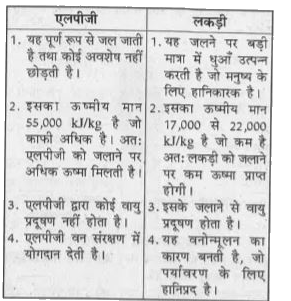 एलपीजी
1. यह पूर्ण रूप से जल जाती
है तथा कोई अवशेष नहीं
छोड़ती है।
2. इसका ऊष्मीय मान
55,000 kJ/kg है जो
काफी अधिक है। अतः
एलपीजी को जलाने पर
अधिक ऊष्मा मिलती है।
3. एलपीजी द्वारा कोई वायु
प्रदूषण नहीं होता है।
4. एलपीजी वन संरक्षण में
योगदान देती है।
लकड़ी
1. यह जलने पर बड़ी
मात्रा में धुआँ उत्पन्न
करती है जो मनुष्य के
लिए हानिकारक है।
2. इसका ऊष्मीय मान
17,000 से 22,000
kJ/kg है जो कम है
अतः लकड़ी को जलाने
पर कम ऊष्मा प्राप्त
होगी।
3. इसके जलाने से वायु
प्रदूषण होता है।
4. यह वनोन्मूलन का
कारण बनती है, जो
पर्यावरण के लिए
हानिप्रद है।